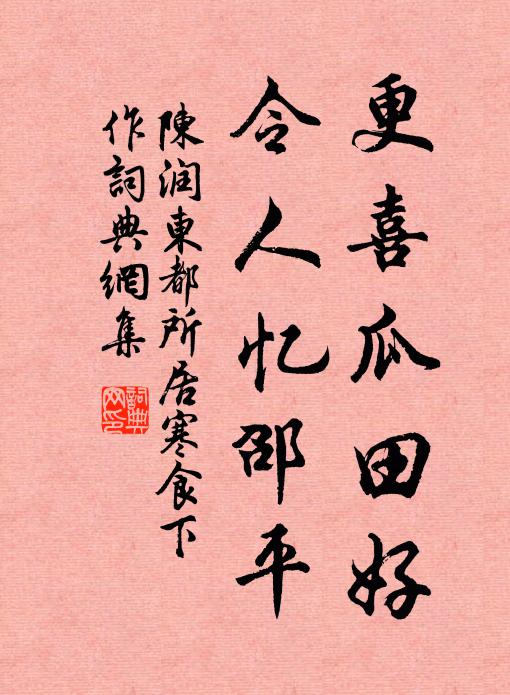 更喜瓜田好
令人忆邵平
陳润東都所居寒食下
作詞典網集
詞典
网印